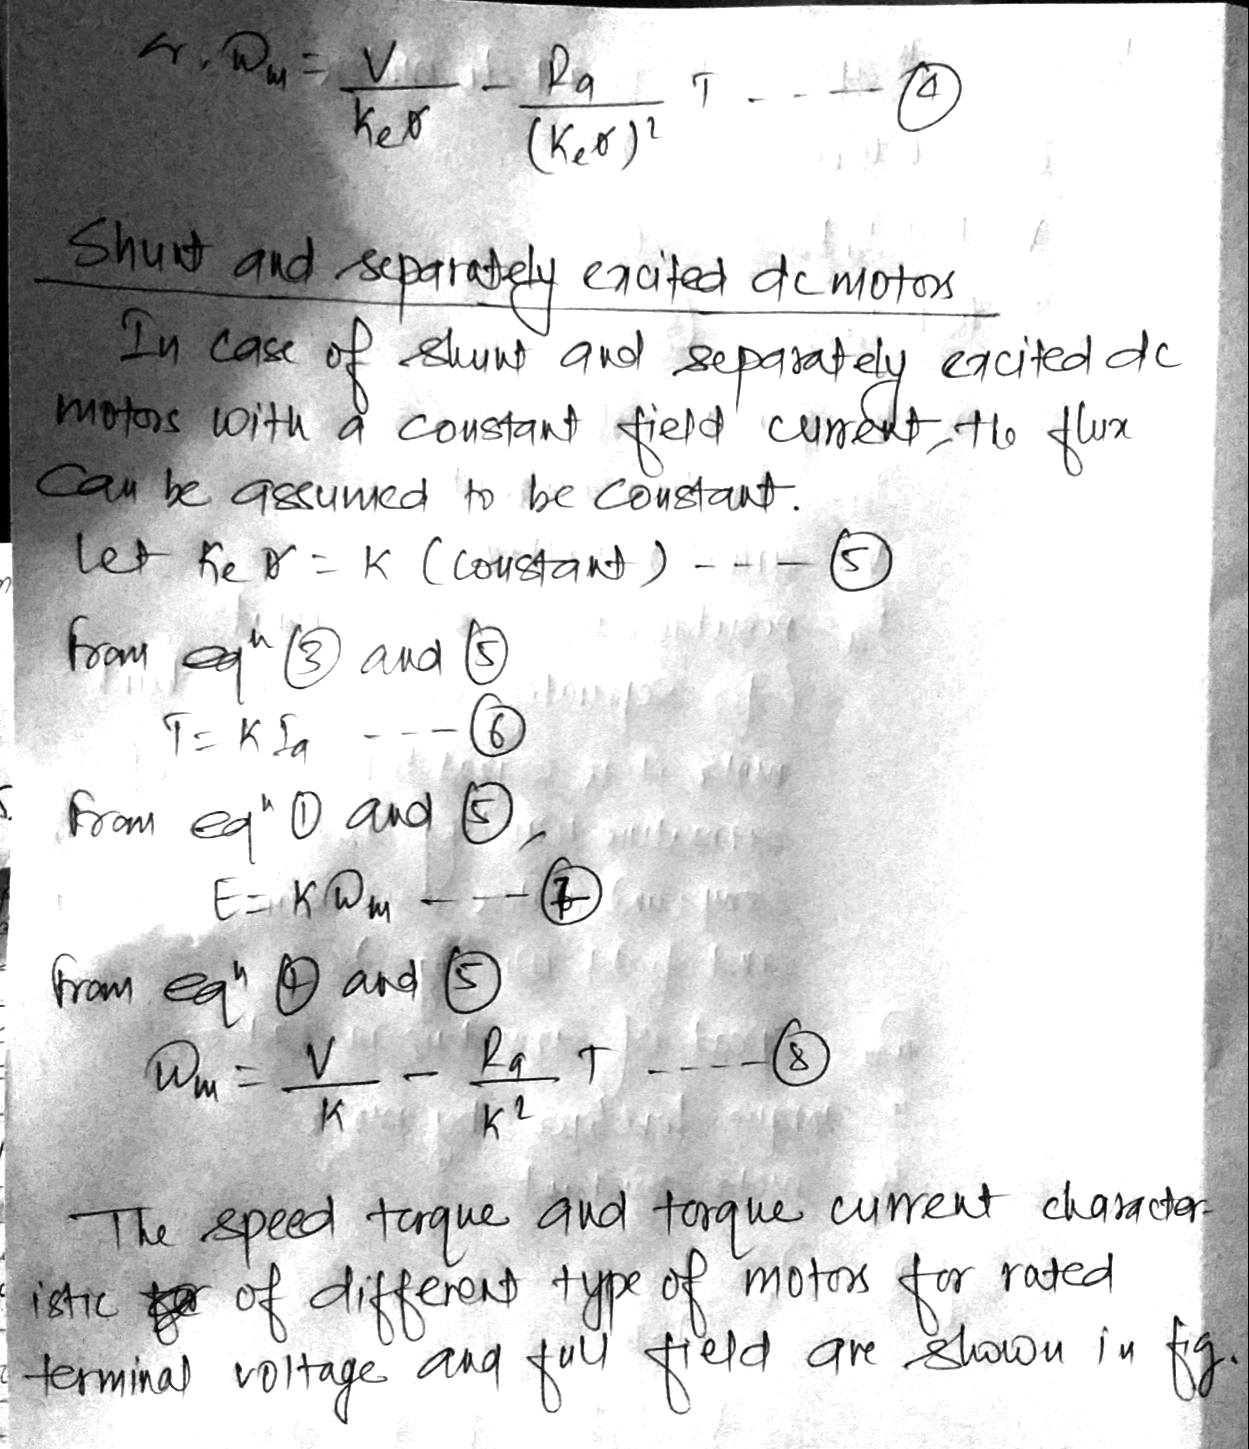 or, ωm = V/Keφ - Ra/(Keφ)² T ---- ④
Shunt and separately excited dc motors
In case of shunt and separately excited dc
motors with a constant field current, the flux
can be assumed to be constant.
Let Keφ = K (constant) ---- ⑤
From eqⁿ ③ and ⑤
T = K Ia ---- ⑥
From eqⁿ ① and ⑤,
E = K ωm ---- ⑦
From eqⁿ ④ and ⑤
ωm = V/K - Ra/K² T ----- ⑧
The speed torque and torque current character-
istic of different type of motors for rated
terminal voltage and full field are shown in fig.